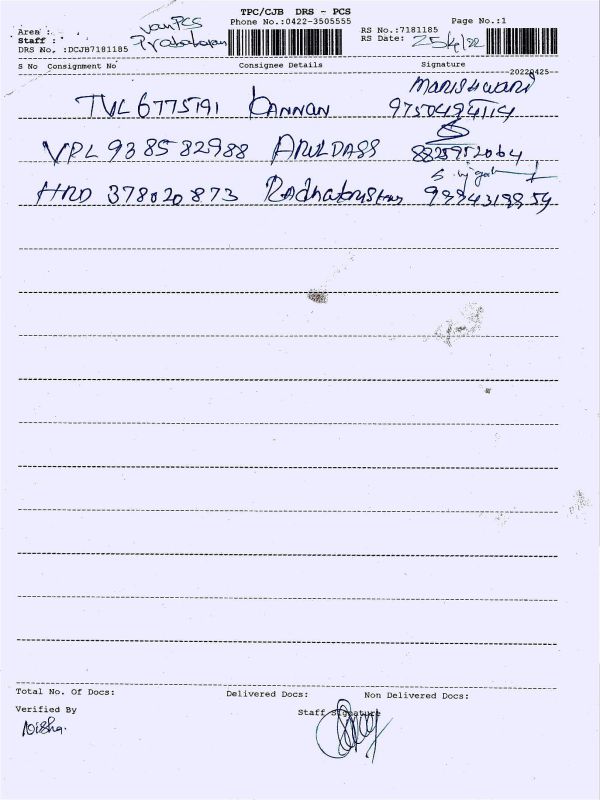 TPC/CJB DRS - PCS
Phone No.:0422-3505555
Page No.:1
Area :
van PCS
Staff :
Prabakaran
RS No.:7181185
RS Date: 25/4/22
DRS No. :DCJB7181185
S No Consignment No Consignee Details Signature
20220425
TVL 6775191 KANNAN MANISHWARI
9750494114
VPL 938582988 ARULDASS 8825952064
HRD 378020873 Radhakrishnan 9994319859
Total No. Of Docs: Delivered Docs: Non Delivered Docs:
Verified By Staff Signature
Nisha.